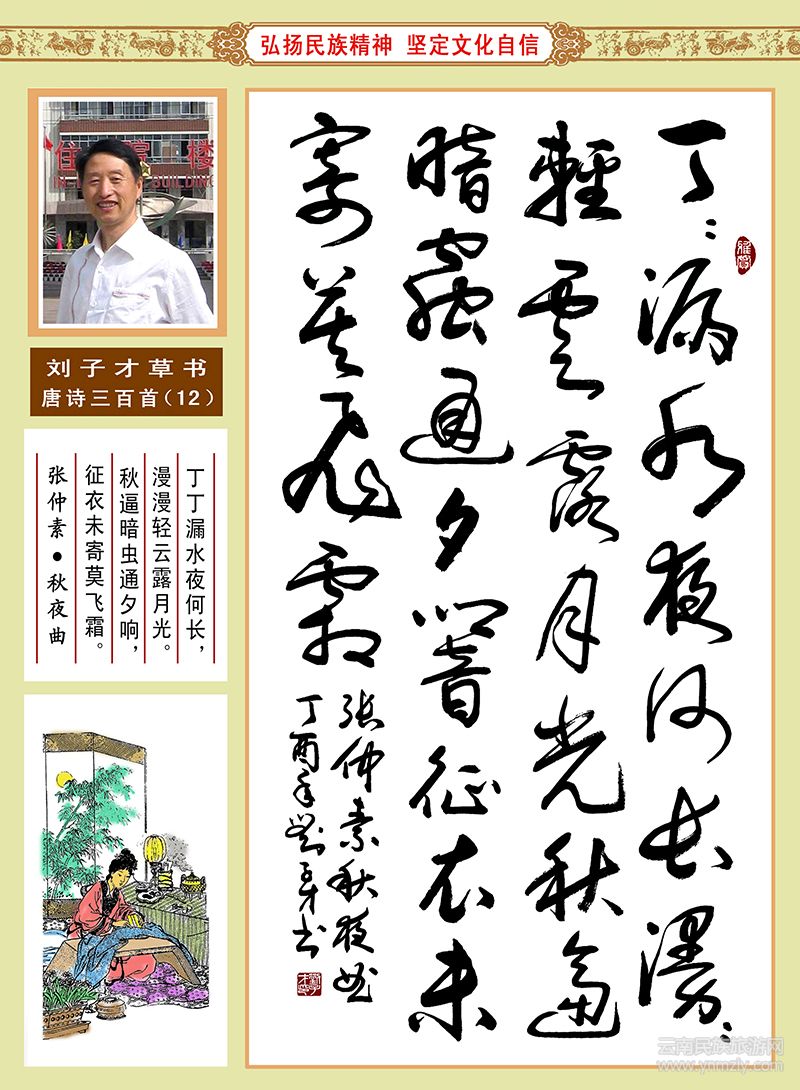 弘扬民族精神 坚定文化自信
住院楼
BUILDING
刘子才草书
唐诗三百首(12)
丁丁漏水夜何长，
漫漫轻云露月光。
秋逼暗虫通夕响，
征衣未寄莫飞霜。
张仲素●秋夜曲
丁〻漏水夜何長漫〻
輕雲露月光秋逼
暗蟲通夕響征衣未
寄莫飛霜
張仲素秋夜曲
丁酉年劉子才书
云南民族旅游网
www.ynmzly.com